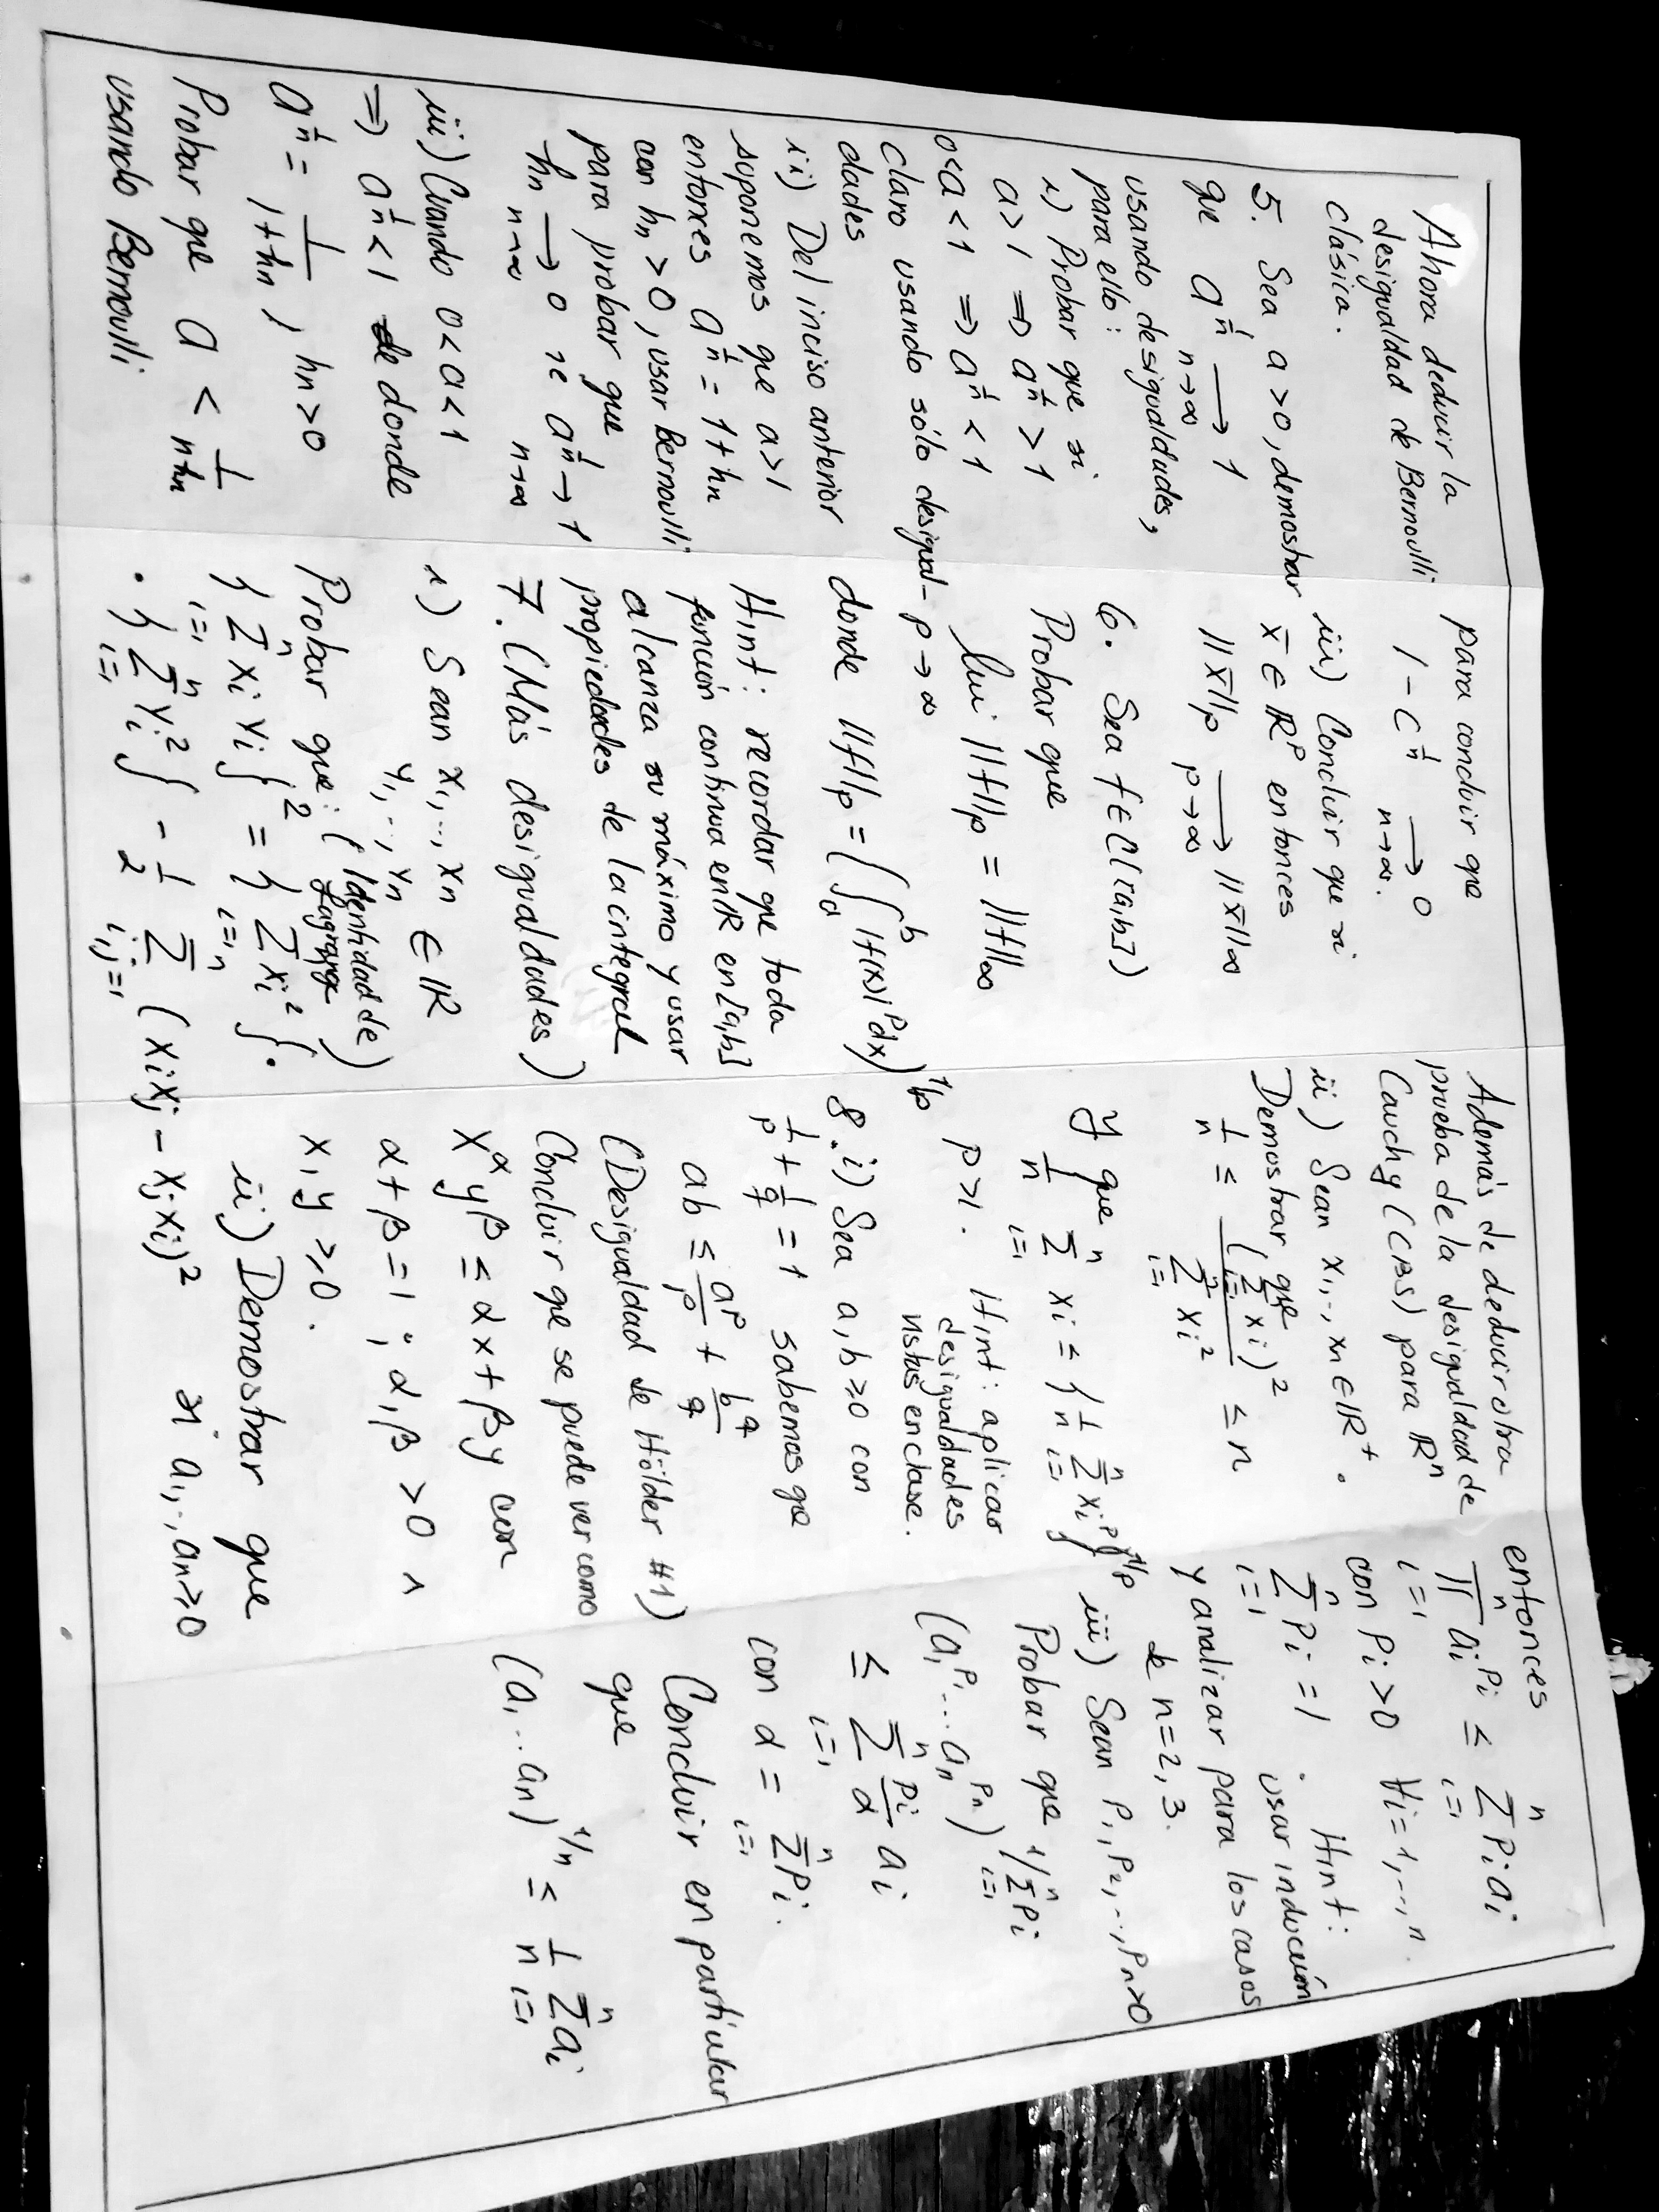 Ahora deducir la
desigualdad de Bernoulli
clásica.
5. Sea a>0, demostrar
que a^{1/n} → 1
n→∞
usando desigualdades,
para ello:
i) Probar que si
a>1 ⇒ a^{1/n} > 1
0<a<1 ⇒ a^{1/n} < 1
claro usando sólo desigual-
dades
ii) Del inciso anterior
suponemos que a>1
entonces a^{1/n} = 1+hn
con hn>0, usar Bernoulli
para probar que
hn → 0 ie a^{1/n} → 1
n→∞ n→∞
iii) Cuando 0<a<1
⇒ a^{1/n}<1 de donde
a^{1/n} = 1/(1+hn), hn>0
Probar que a < 1/(n+hn)
usando Bernoulli
para concluir que
1 - c^{1/n} → 0
n→∞.
iii) Concluir que si
x̄ ∈ ℝ^p entonces
||x̄||p → ||x̄||∞
p→∞
6. Sea f∈C([a,b])
Probar que
lim ||f||p = ||f||∞
p→∞
donde ||f||p = (∫_a^b |f(x)|^p dx)^{1/p}
Hint: recordar que toda
función continua en ℝ en [a,b]
alcanza su máximo y usar
propiedades de la integral
7. (Más desigualdades)
i) Sean x1,..,xn
y1,..,yn ∈ ℝ
Probar que: (Identidad de
Lagrange)
{∑_{i=1}^n xi yi}^2 = {∑_{i=1}^n xi^2}·
·{∑_{i=1}^n yi^2} - 1/2 ∑_{i,j=1} (xiyj - xjxi)^2
Además de deducir otra
prueba de la desigualdad de
Cauchy (CBS) para ℝ^n
ii) Sean x1,..,xn∈ℝ^+.
Demostrar que
1/n = (∑_{i=1}^n xi)^2 / ∑_{i=1}^n xi^2 ≤ n
y que
1/n ∑_{i=1}^n xi = {1/n ∑_{i=1}^n xi^p}^{1/p}
p>1. Hint: aplicar
desigualdades
vistas en clase.
8. i) Sea a,b≥0 con
1/p + 1/q = 1 sabemos que
ab ≤ a^p/p + b^q/q
(Desigualdad de Hölder #1)
Concluir que se puede ver como
x^α y^β ≤ αx + βy con
α+β=1 ; α,β>0 ∧
x,y≥0.
ii) Demostrar que
si a1,..,an≥0
entonces
∏_{i=1}^n ai^{pi} ≤ ∑_{i=1}^n pi ai
con pi>0 ∀i=1,..,n.
∑_{i=1}^n pi = 1 . Hint:
usar inducción
y analizar para los casos
de n=2,3.
iii) Sean p1,p2,..,pn>0
Probar que
(a1^{p1}...an^{pn})^{1/∑_{i=1}^n pi}
≤ ∑_{i=1}^n pi/α ai
con α = ∑_{i=1}^n pi.
Concluir en particular
que
(a1..an)^{1/n} ≤ 1/n ∑_{i=1}^n ai